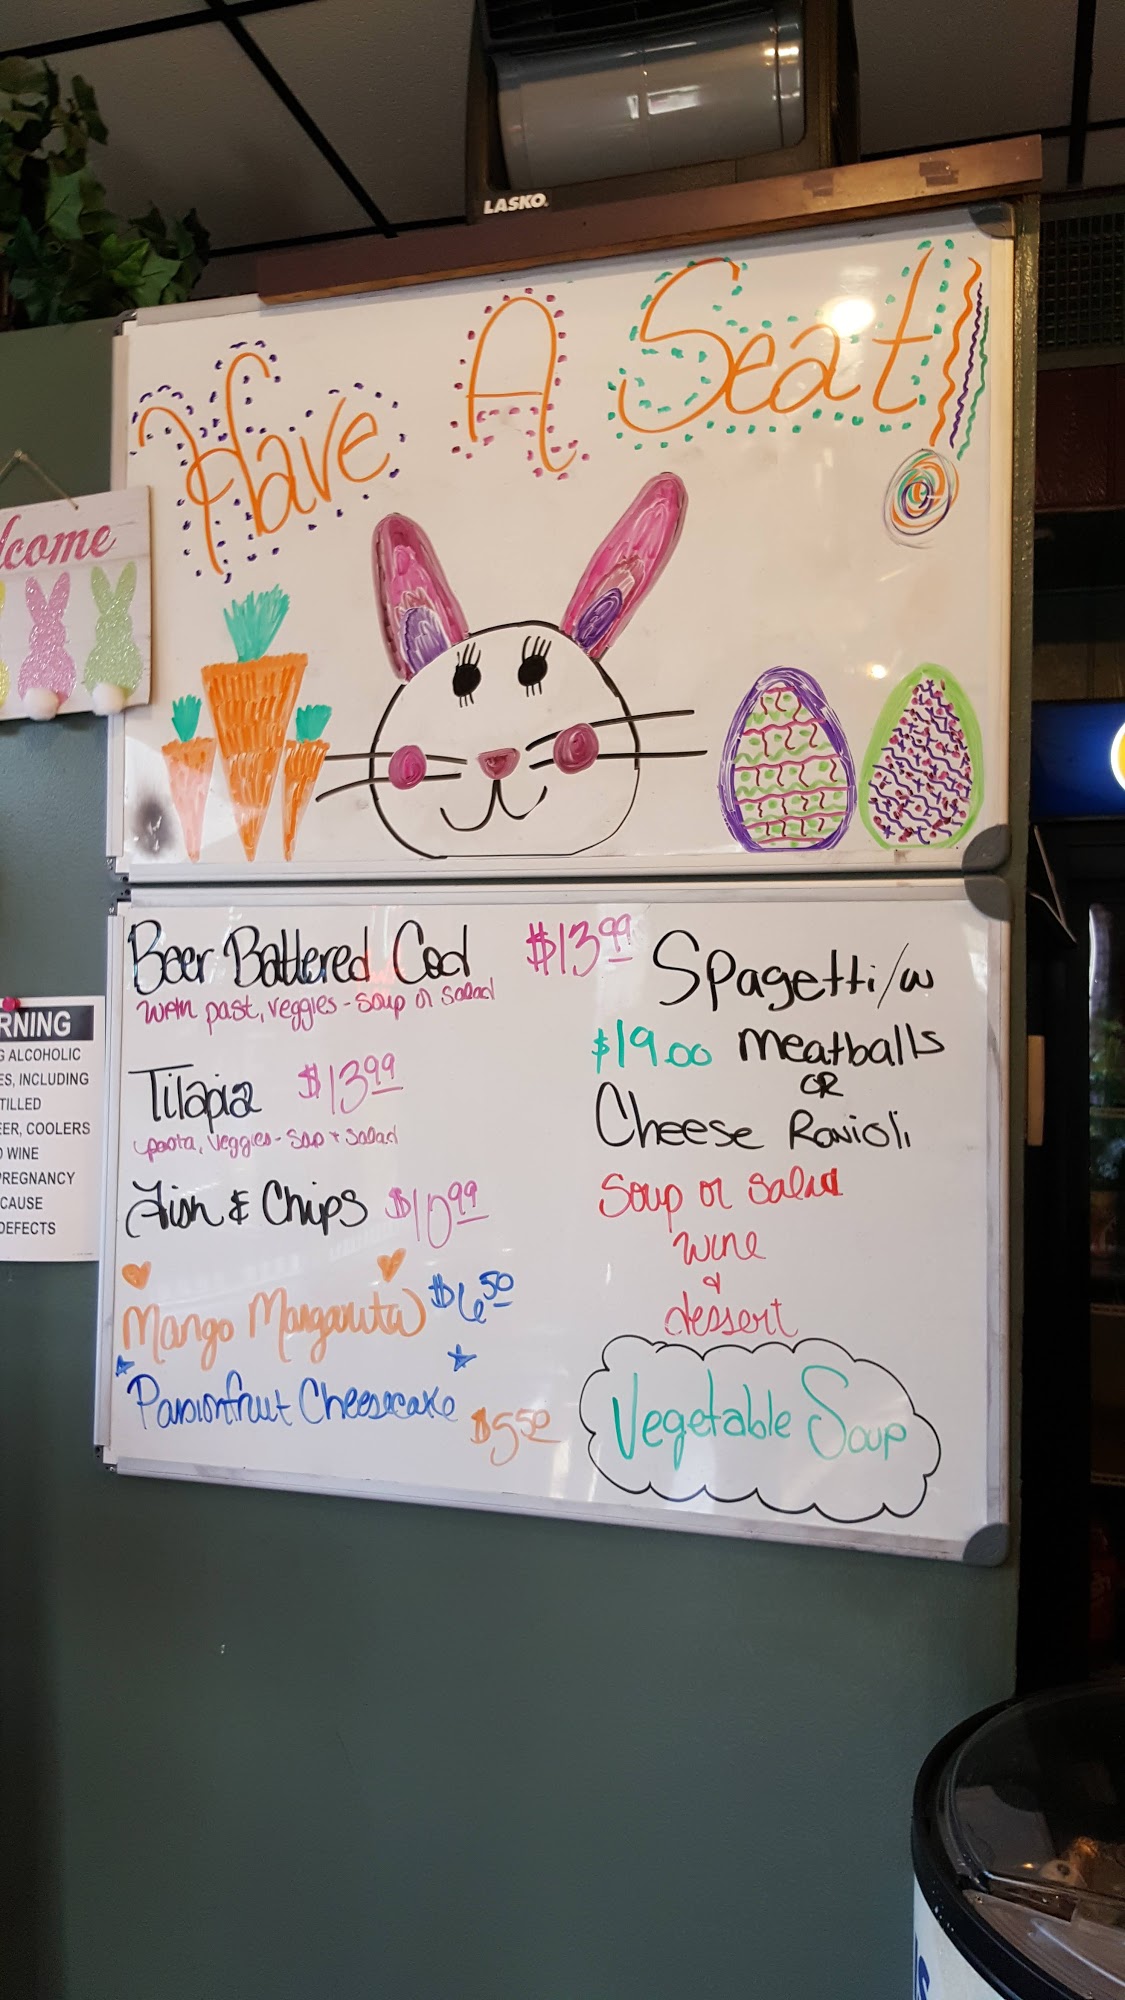 LASKO
Have A Seat!
lcome
Beer Battered Cod $13.99
with past, veggies - soup or salad
Tilapia $13.99
pasta, veggies - soup + salad
Fish & Chips $10.99
Mango Margarita $6.50
Passionfruit Cheesecake
$5.50
Spagetti/w
$19.00 meatballs
OR
Cheese Ravioli
Soup or salad
wine
&
dessert
Vegetable Soup
RNING
G ALCOHOLIC
ES, INCLUDING
TILLED
EER, COOLERS
D WINE
PREGNANCY
CAUSE
DEFECTS